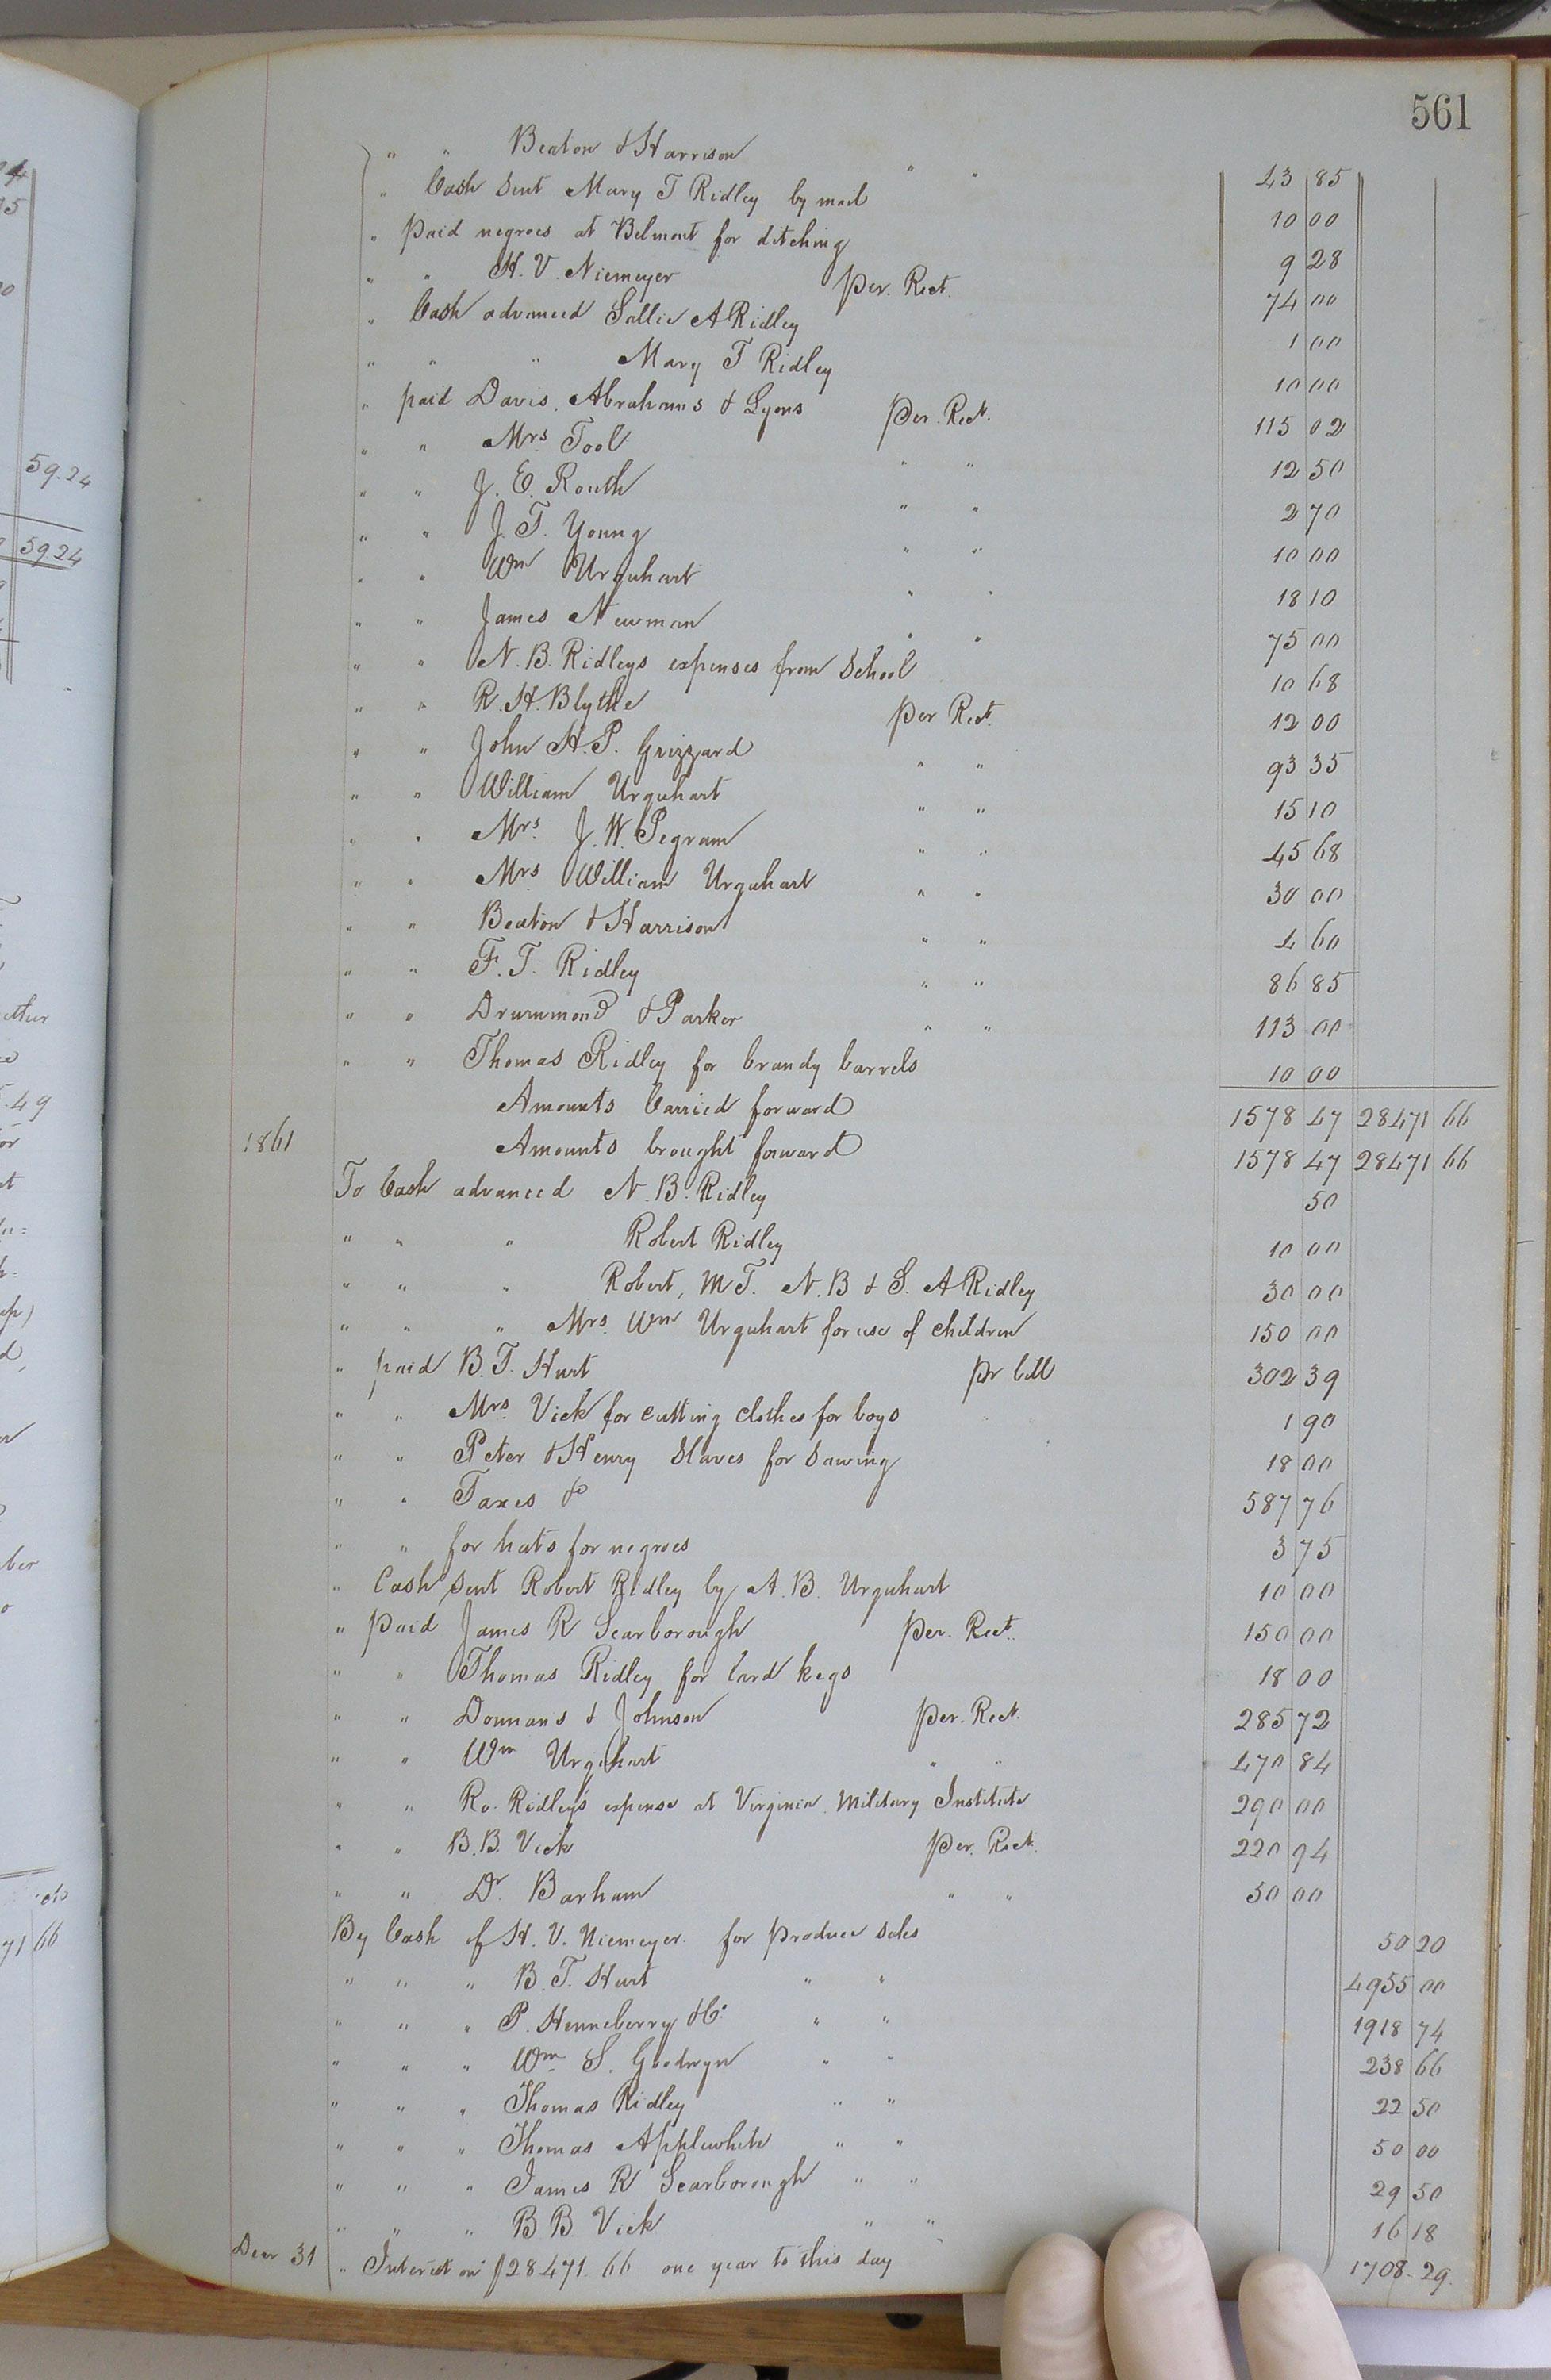 561
" " Beaton & Harrison " " 43 85
" Cash Sent Mary T Ridley by mail 10 00
" paid negroes at Belmont for ditching 9 28
" " H. V. Niemeyer per. Rect. 74 00
" Cash advanced Sallie A Ridley 1 00
" " " Mary T Ridley 10 00
" paid Davis, Abrahams & Lyons per. Rect. 115 02
" " Mrs Tool " " 12 50
" " J. E. Routh " " 2 70
" " J. T. Young " " 10 00
" " Wm Urquhart " " 18 10
" " James Newman " " 75 00
" " N. B. Ridleys expenses from School 10 68
" " R. H. Blythe per Rect. 12 00
" " John H. P. Grizzard " " 93 35
" " William Urquhart " " 15 10
" " Mrs. J. W. Pegram " " 45 68
" " Mrs. William Urquhart " " 30 00
" " Beaton & Harrison " " 4 60
" " F. T. Ridley " " 86 85
" " Drummond & Parker " " 113 00
" " Thomas Ridley for brandy barrels 10 00
Amounts Carried forward 1578 47 28471 66
1861 Amounts brought forward 1578 47 28471 66
To Cash advanced N. B. Ridley 50
" " " Robert Ridley 10 00
" " " Robert, M T. N. B & S. A Ridley 30 00
" " " Mrs. Wm Urquhart for use of children 150 00
" paid B. T. Hurt pr bill 302 39
" " Mrs. Vick for cutting clothes for boys 1 90
" " Peter & Henry Slaves for Sawing 18 00
" " Taxes & 587 76
" " for hats for negroes 3 75
" Cash Sent Robert Ridley by A. B. Urquhart 10 00
" paid James R Scarborough per. Rect. 150 00
" " Thomas Ridley for lard kegs 18 00
" " Donnans & Johnson per. Rect. 285 72
" " Wm Urquhart " " 470 84
" " Ro. Ridley's expense at Virginia Military Institute 290 00
" " B. B. Vick per. Rect. 220 94
" " Dr. Barham " " 50 00
By Cash of H. V. Niemeyer for produce sales 50 20
" " " B. T. Hurt " " 4955 00
" " " P. Henneberry & Co. " " 1918 74
" " " Wm S. Goodwyn " " 238 66
" " " Thomas Ridley " " 22 50
" " " Thomas Applewhite " " 50 00
" " " James R Scarborough " " 29 50
" " " B B Vick " " 16 18
Decr 31 " Interest on $28471.66 one year to this day 1708.29
59.24
59 24